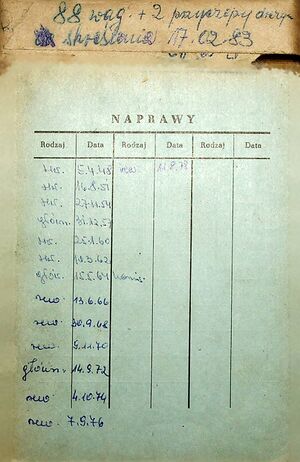 88 wag. + 2 przyczepy
skreślenia 17.02.83
NAPRAWY
Rodzaj Data Rodzaj Data Rodzaj Data
5.4.48 11.8.78
16.8.51
27.11.54
główn. 31.12.57
25.1.60
1.3.62
główn. 15.5.64
rew. 13.6.66
rew. 30.9.68
rew. 9.11.70
główn. 14.9.72
rew. 4.10.74
rew. 7.9.76